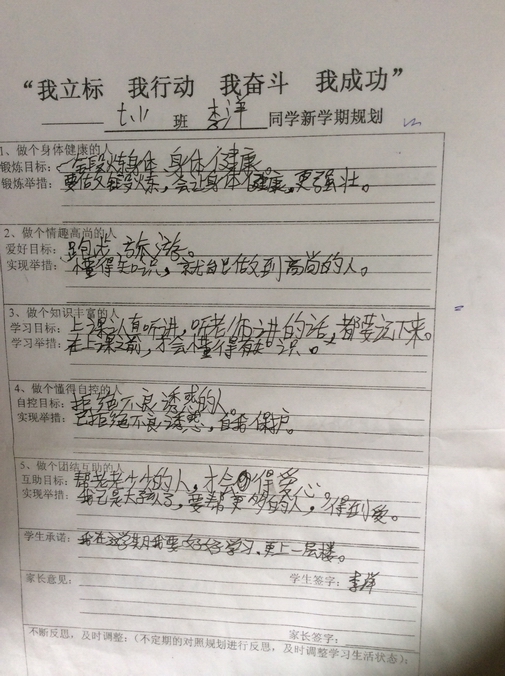 “我立标 我行动 我奋斗 我成功”
班 李洋 同学新学期规划
1、做个身体健康的人
锻炼目标：锻炼身体，身体健康。
锻炼举措：要做锻炼，会让身体健康，更强壮。
2、做个情趣高尚的人
爱好目标：跑步、旅游。
实现举措：懂得知识，就自己做到高尚的人。
3、做个知识丰富的人
学习目标：上课认真听讲，听老师讲的话，都要记下来。
学习举措：在上课之前，才会懂得有知识。
4、做个懂得自控的人
自控目标：拒绝不良诱惑的人。
实现举措：已拒绝不良诱惑，自我保护。
5、做个团结互助的人
互助目标：帮老老少少的人，才会得爱
实现举措：我已是大孩了，要帮更多的人，得到爱。
学生承诺：我在这学期我要好好学习，更上一层楼。
家长意见：
学生签字：李洋
家长签字：
不断反思，及时调整：（不定期的对照规划进行反思，及时调整学习生活状态）：